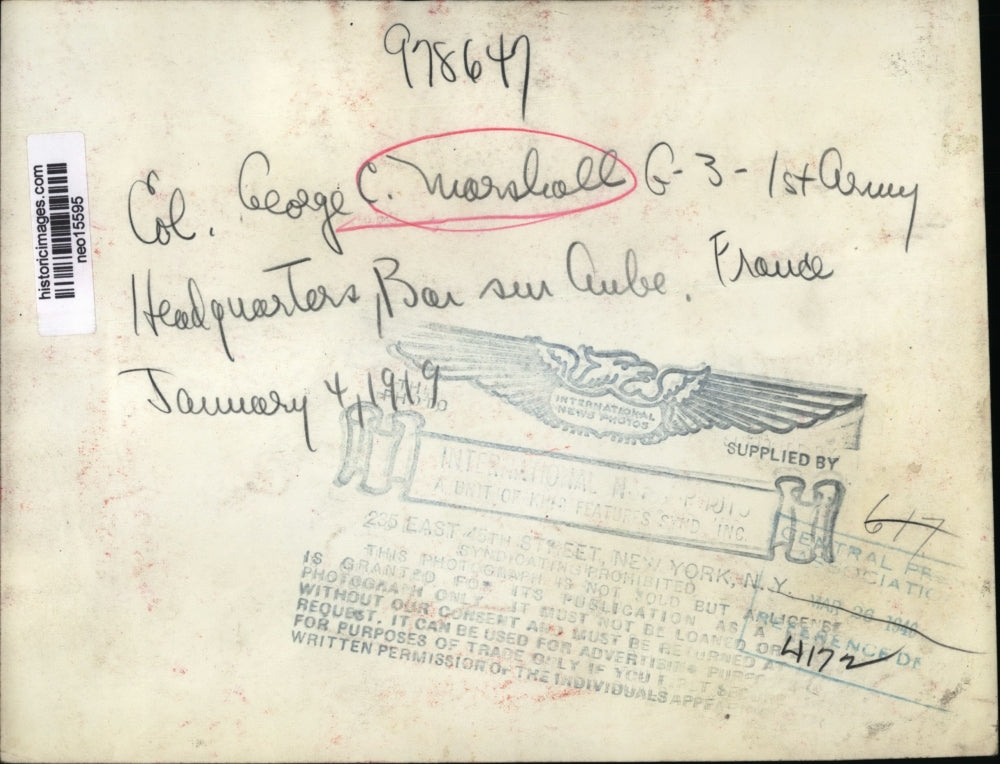 978647
historicimages.com
neo15595
Col. George C. Marshall G-3- 1st Army
Headquarters, Bar sur Aube, France
January 4, 1919
INTERNATIONAL
NEWS PHOTOS
SUPPLIED BY
INTERNATIONAL
A UNIT OF KING FEATURES SYND., INC.
235 EAST 45TH STREET, NEW YORK, N.Y.
SYNDICATING PROHIBITED
THIS PHOTOGRAPH IS NOT SOLD BUT A LICENSE
IS GRANTED FOR ITS PUBLICATION AS A
PHOTOGRAPH ONLY. IT MUST NOT BE LOANED OR
WITHOUT OUR CONSENT AND MUST BE RETURNED AT
REQUEST. IT CAN BE USED FOR ADVERTISING
FOR PURPOSES OF TRADE ONLY IF YOU
WRITTEN PERMISSION OF THE INDIVIDUALS APPEA
617
CENTRAL PRE
OCIATIO
MAR 26 1940
REFERENCE DE
4172